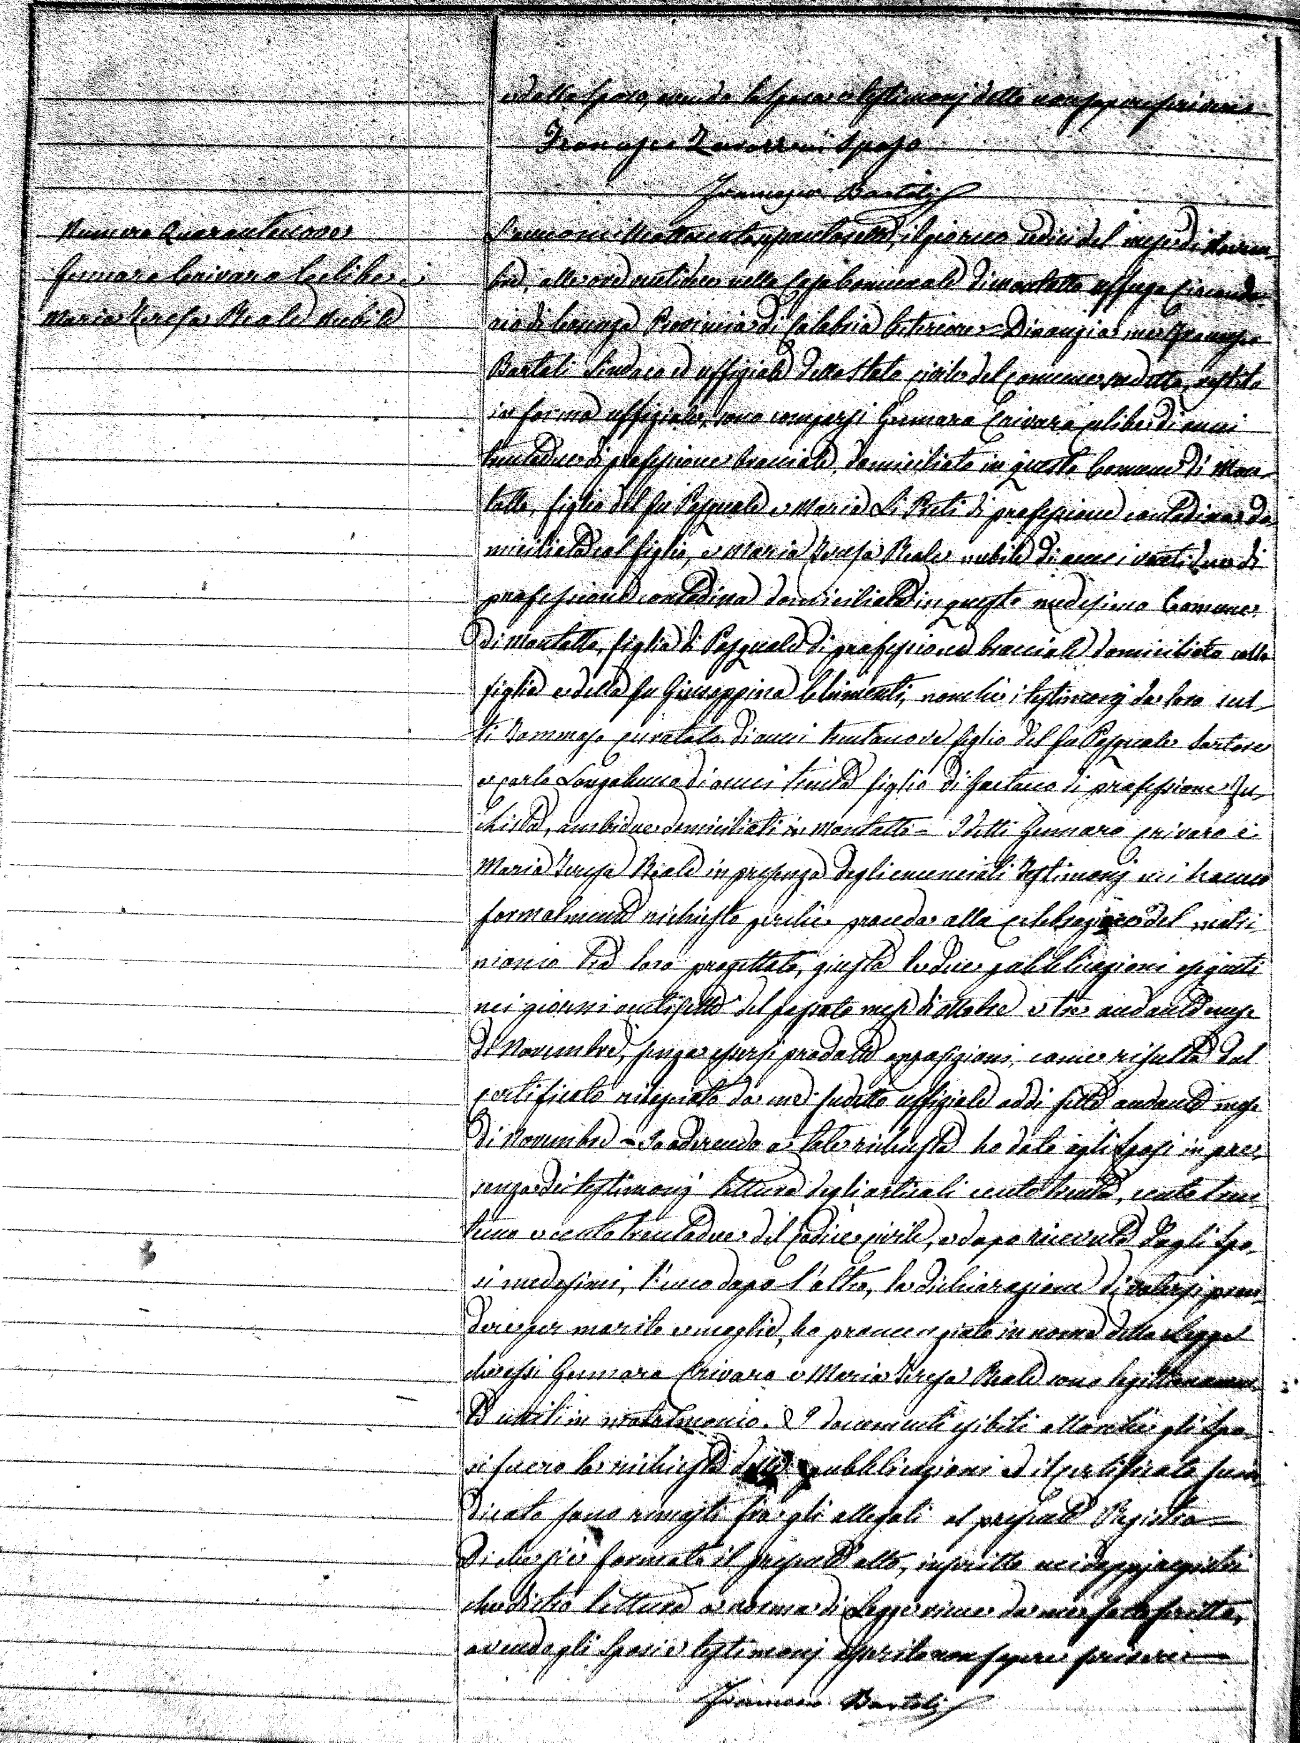 e dallo sposo, avendo la sposa e testimonj detto non sapere scrivere
Francesco sposo
Francesco Bartoli
Numero Quarantanove
Gennaro Crivaro Celibe e
Maria Teresa Reale Nubile
L'anno mille ottocento, il giorno sedici del mese di Novem-
bre, alle ore undici nella Casa Comunale di Montalto Uffugo Circonda-
rio di Cosenza Provincia di Calabria Citeriore = Dinanzi a me Francesco
Bartoli Sindaco ed uffiziale dello Stato civile del Comune suddetto, vestito
in forma uffiziale, sono comparsi Gennaro Crivaro celibe di anni
trentadue di professione bracciale, domiciliato in questo Comune di Mon-
talto, figlio del fu Pasquale e Maria Li Preti di professione contadina do-
miciliata col figlio, e Maria Teresa Reale nubile di anni ventidue di
professione contadina domiciliata in questo medesimo Comune
di Montalto, figlia di Pasquale di professione bracciale domiciliato colla
figlia e della fu Giuseppina Chimenti, nonchè i testimonj da loro scel-
ti Tommaso di anni trentanove figlio del fu Pasquale Sartore
e Carlo Longobucco di anni trenta figlio di Gaetano di professione
ambidue domiciliati in Montalto = I detti Gennaro Crivaro e
Maria Teresa Reale in presenza degli enunciati testimonj mi hanno
formalmente richiesto perchè proceda alla celebrazione del matri-
monio tra loro progettato, giusta le due pubblicazioni eseguite
nei giorni ventisette del passato mese di ottobre e tre andante mese
di Novembre, senza essersi prodotte opposizioni, come risulta dal
certificato rilasciato da me sudetto uffiziale addì sette andante mese
di Novembre = Io aderendo a tale richiesta ho dato agli sposi in pre-
senza dei testimonj lettura degli articoli cento trenta, cento tren-
tuno e cento trentadue del Codice civile, e dopo ricevuta dagli Spo-
si medesimi, l'uno dopo l'altro, la dichiarazione di volersi pren-
dere per marito e moglie, ho pronunziato in nome della Legge
che essi Gennaro Crivaro e Maria Teresa Reale sono legittimamen-
te uniti in matrimonio. I documenti esibiti allorchè gli Spo-
si fecero la richiesta delle pubblicazioni ed il certificato suin-
dicato sono rimasti fra gli allegati al presente Registro =
Di che si è formato il presente atto, inscritto nei doppj registri
che dietro lettura a norma di Legge viene da me sottoscritto,
avendo gli Sposi e testimonj asserito non sapere scrivere =
Francesco Bartoli